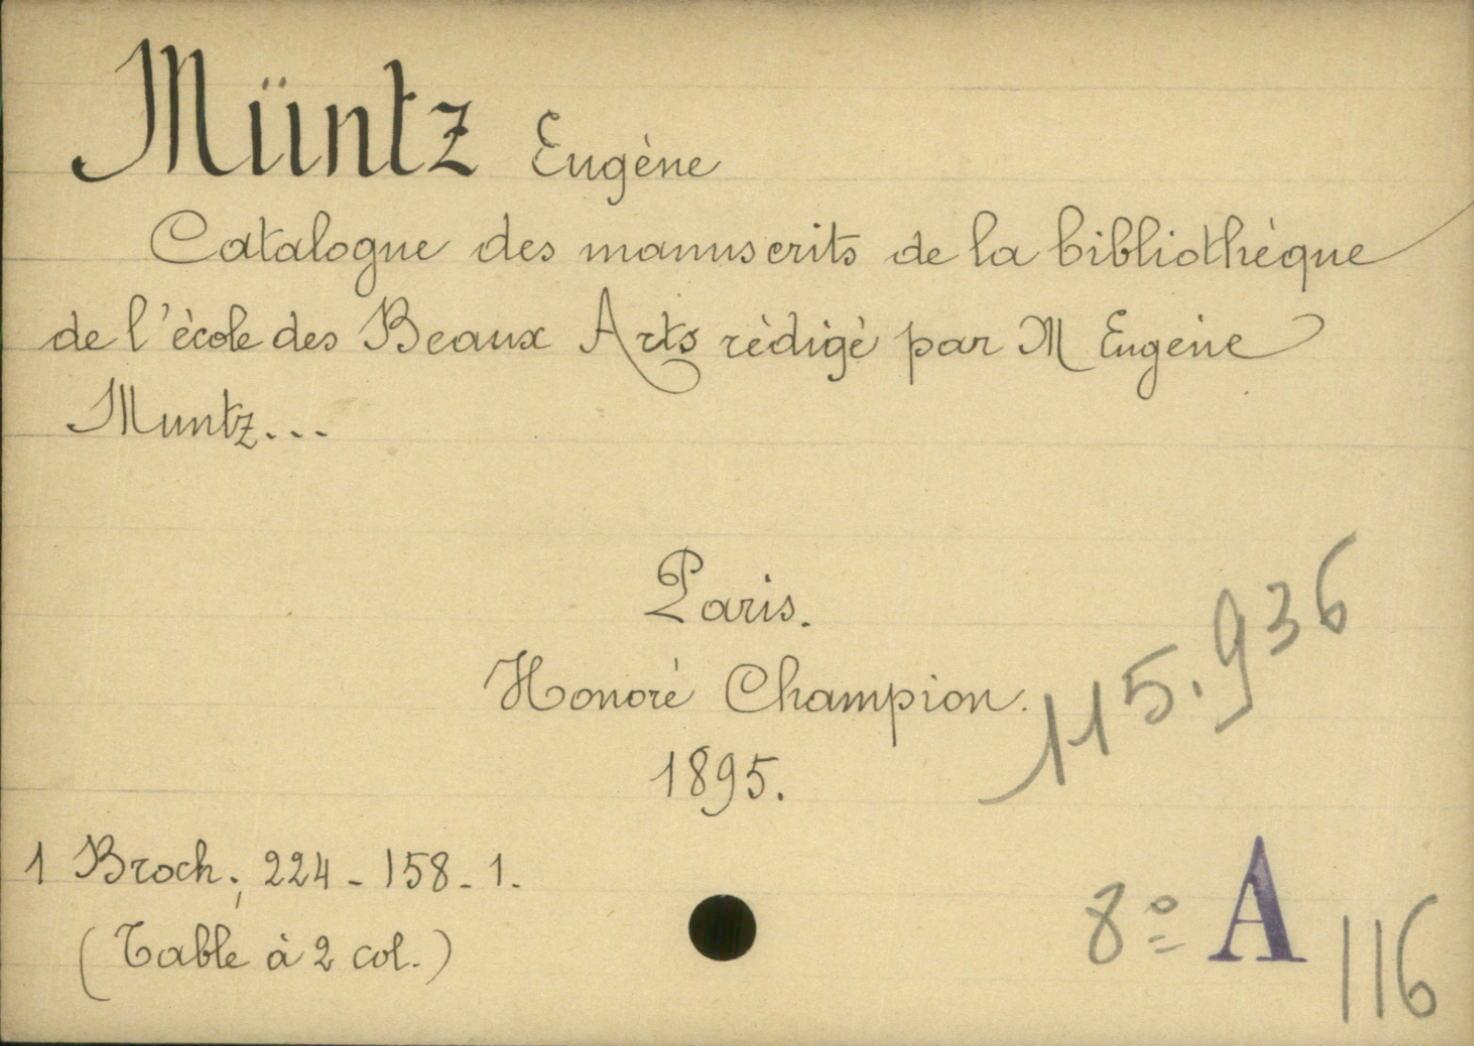 Müntz Eugène
Catalogue des manuscrits de la bibliothèque
de l'ècole des Beaux Arts rèdigè par M Eugène
Muntz...
Paris.
Honorè Champion.
1895.
115.936
1 Broch; 224-158-1.
(Table à 2 col.)
8º A 116